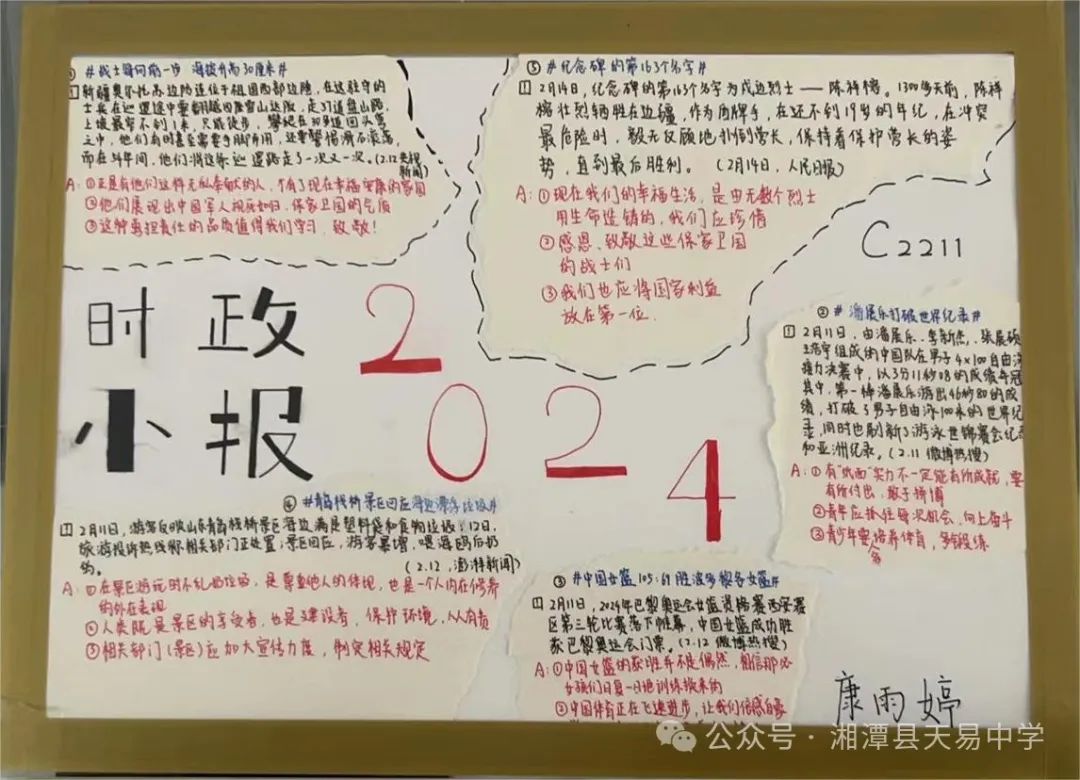 #战士每向前一步 海拔升高30厘米#
①新疆奥尔托苏边防连位于祖国西部边陲,在这驻守的
士兵在巡逻途中要翻越四座雪山达坂,走37道盘山路,
上坡最窄不到1米,只能徒步,攀爬在30多道回头弯
之中,他们有时甚至需要手脚并用,还要警惕滑石滚落,
而在半年间,他们将这条巡逻路走了一次又一次。(2.12央视
新闻)
A:①正是有他们这样无私奉献的人,才有了现在幸福安康的家国
②他们展现出中国军人视死如归,保家卫国的气质
③这种勇担责任的品质值得我们学习、致敬!
⑤#纪念碑的第163个名字#
①2月14日,纪念碑的第163个名字为戍边烈士——陈祥榕。1300多天前,陈祥
榕壮烈牺牲在边疆,作为盾牌手,在还不到19岁的年纪,在冲突
最危险时,毅无反顾地扑倒营长,保持着保护营长的姿
势,直到最后胜利。(2月14日,人民日报)
A:①现在我们的幸福生活,是由无数个烈士
用生命造铸的,我们应珍惜
②感恩、致敬这些保家卫国
的战士们
③我们也应将国家利益
放在第一位.
C2211
时政
小报
2024
②#潘展乐打破世界纪录#
①2月11日,由潘展乐、李新杰、张展硕
王浩宇组成的中国队在男子4×100自由泳
接力决赛中,以3分11秒08的成绩夺冠
其中,第一棒潘展乐游出46秒80的成
绩,打破了男子自由泳100米的世界纪
录,同时也刷新了游泳世锦赛会纪录
和亚洲纪录。(2.11 微博热搜)
A:①有"纸面"实力不一定能有所成就,要
有所付出,敢于拼博
②青年应抓住每次机会,向上奋斗
③青少年要培养体育,多锻练
④#青岛栈桥景区回应海边漂浮垃圾#
①2月11日,游客反映山东青岛栈桥景区海边满是塑料袋和食物垃圾;12日,
旅游投诉热线称相关部门正处置;景区回应,游客暴增,喂海鸥后扔
的。(2.12,澎湃新闻)
A:①在景区游玩时不乱扔垃圾,是尊重他人的体现,也是一个人内在修养
的外在表现
②人类既是景区的享受者,也是建设者,保护环境,人人有责
③相关部门(景区)应加大宣传力度,制定相关规定
③#中国女篮105:69胜波多黎各女篮#
①2月11日,2024年巴黎奥运会女篮资格赛西安赛
区第三轮比赛落下帷幕,中国女篮成功胜
获巴黎奥运会门票。(2.12 微博热搜)
A:①中国女篮的获胜并不是偶然,相信那必
女孩们日复一日地训练换来的
②中国体育正在飞速进步,让我们倍感自豪
康雨婷
公众号·湘潭县天易中学